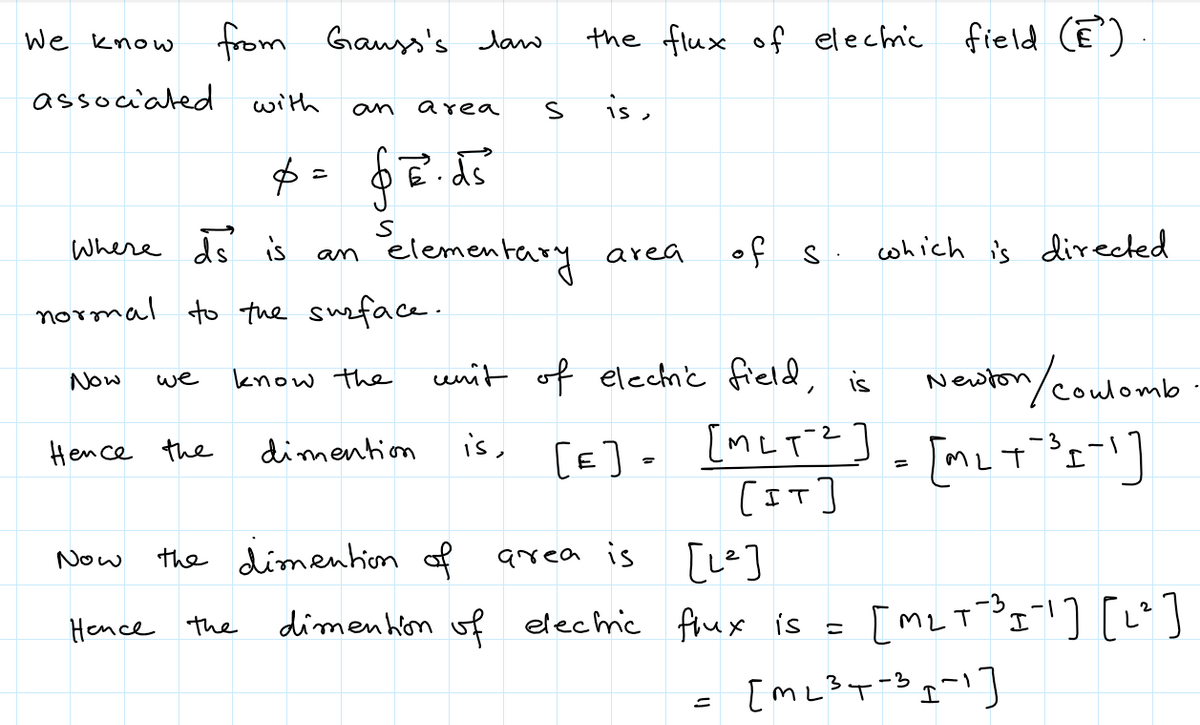 We know from Gauss's law the flux of electric field (E⃗).
associated with an area s is,
ϕ = ∮_S E⃗ . ds⃗
Where ds⃗ is an elementary area of s. which is directed
normal to the surface.
Now we know the unit of electric field, is Newton/coulomb.
Hence the dimention is, [E] = [MLT⁻²]/[IT] = [MLT⁻³I⁻¹]
Now the dimention of area is [L²]
Hence the dimention of electric flux is = [MLT⁻³I⁻¹] [L²]
= [ML³T⁻³I⁻¹]